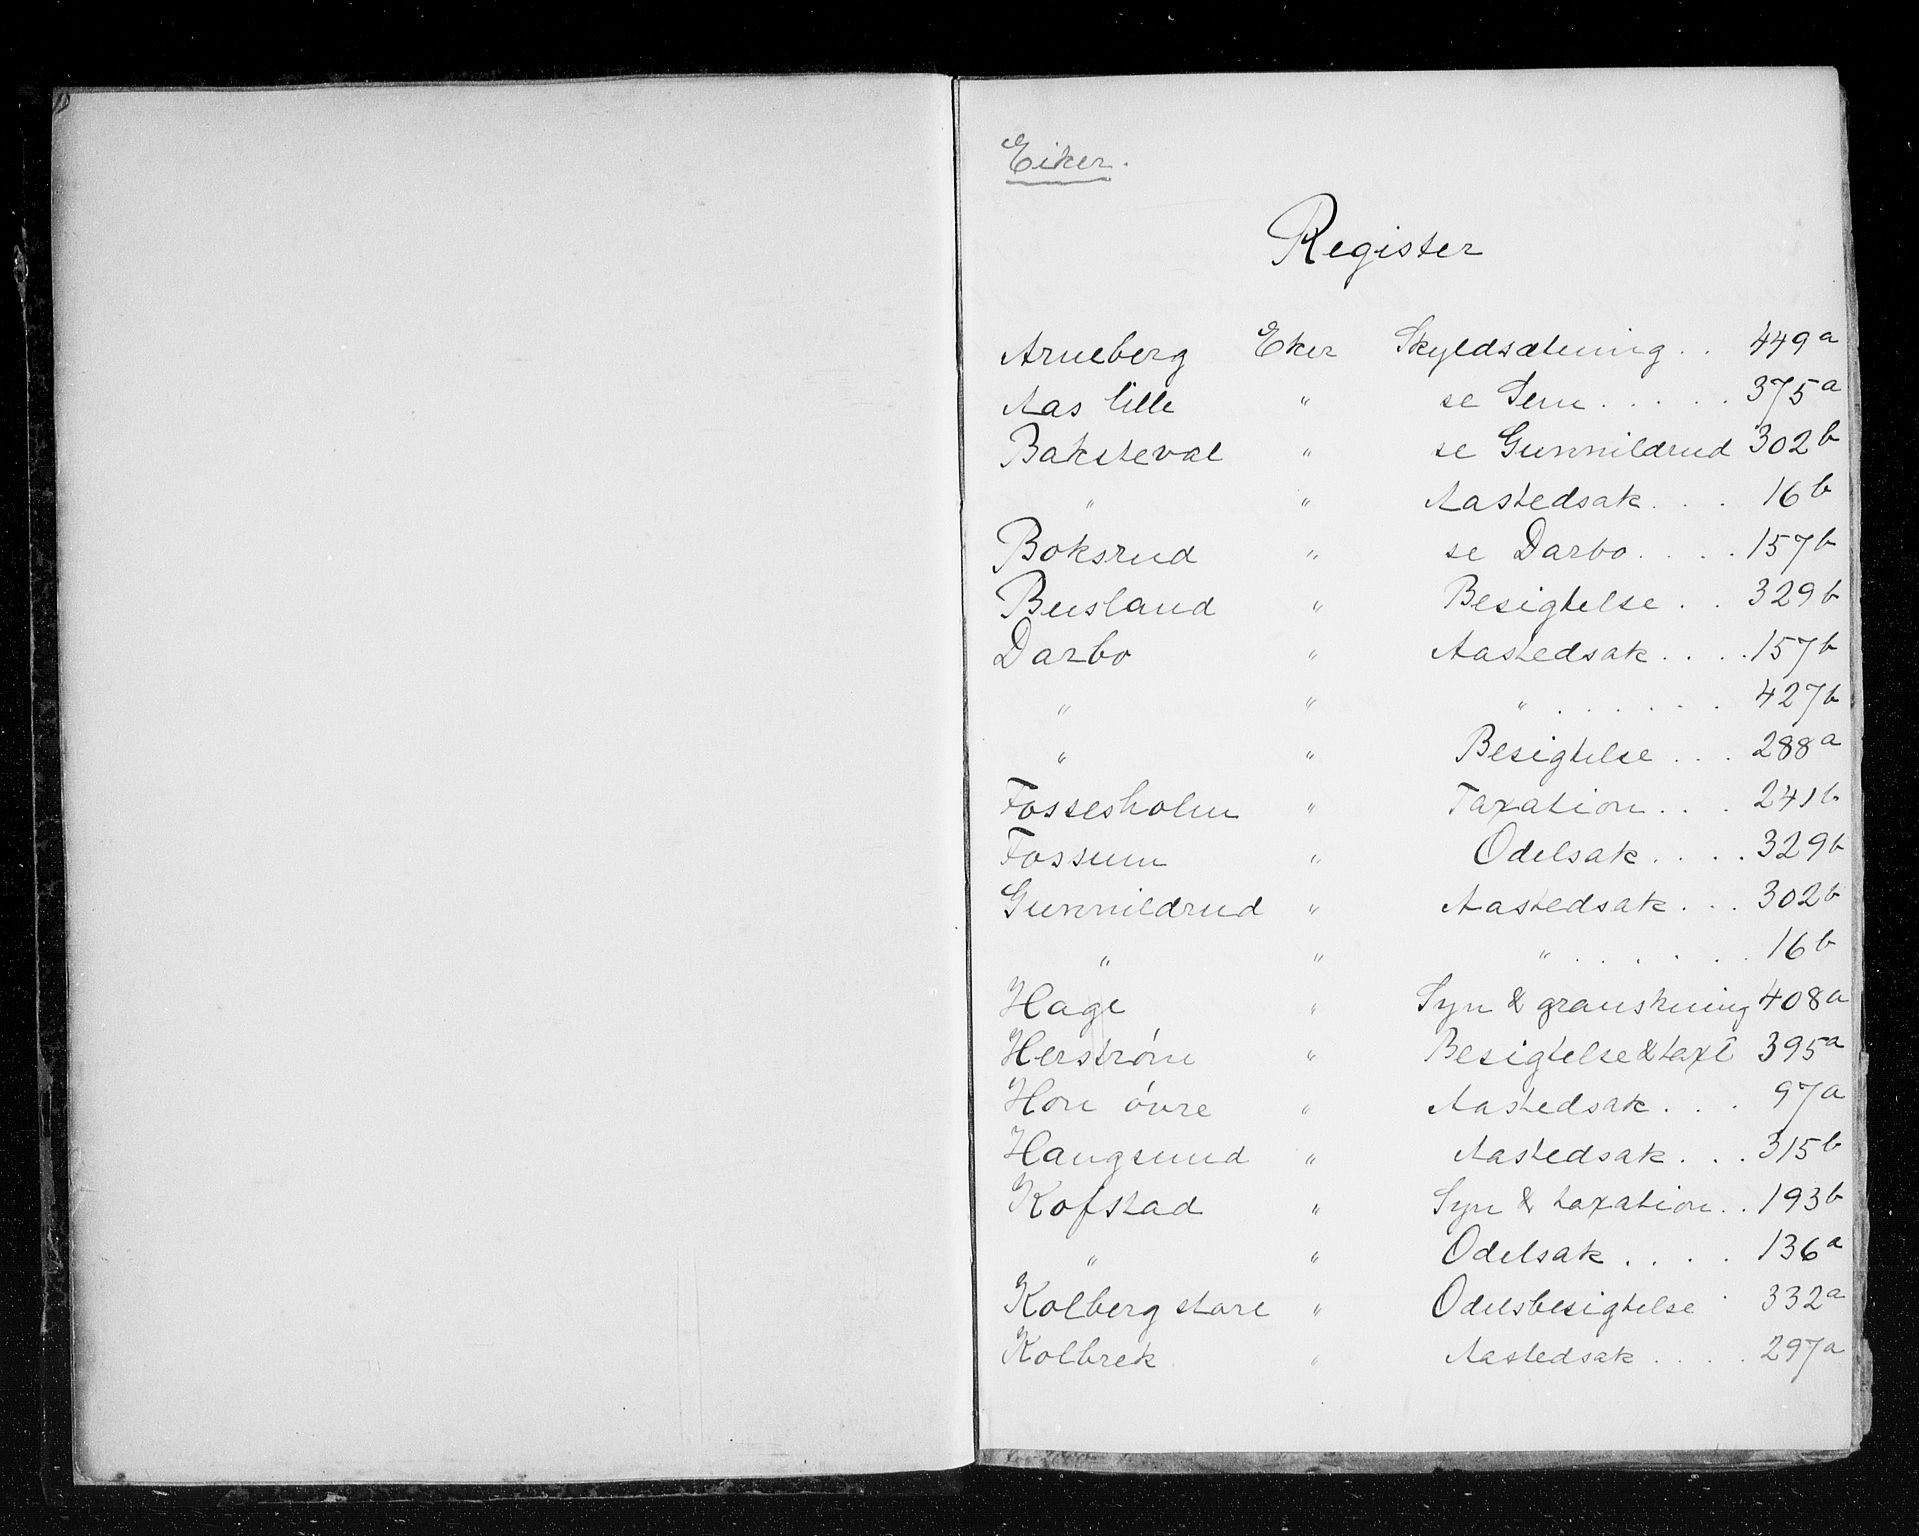 Eiker.
Register
Arneberg Eker Skyldsætning . . 449a
Aas lille " se Sem . . . . . 375a
Baksteval " se Gunnildrud 302b
" " Aastedsak . . . 16b
Boksrud " se Darbo . . . . 157b
Busland " Besigtelse . . 329b
Darbo " Aastedsak . . . . 157b
" " " . . . . . . 427b
" " Besigtelse . . . 288a
Fossesholm " Taxation . . . 241b
Fossum " Odelsak . . . . 329b
Gunnildrud " Aastedsak . . . 302b
" " " . . . . . . 16b
Hage " Syn & granskning 408a
Herstrøm " Besigtelse & taxt 395a
Hon övre " Aastedsak . . . 97a
Haugsund " Aastedsak . . . 315b
Kofstad " Syn & taxation . . 193b
" " Odelsak . . . . 136a
Kolberg store " Odelsbesigtelse . 332a
Kolbrek " Aastedsak . . . . 297a